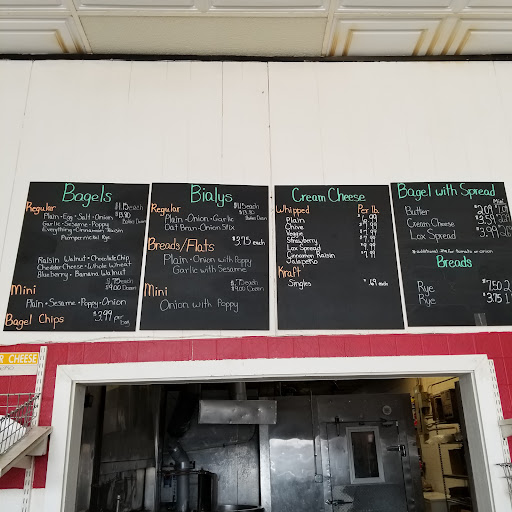 Bagels
Regular $1.15 each
Plain - Egg - Salt - Onion $13.80
Garlic - Sesame - Poppy Baker's Dozen
Everything - Cinnamon Raisin
Pumpernickel Rye
Raisin Walnut - Chocolate Chip
Cheddar Cheese - Whole Wheat
Blueberry - Banana Walnut
$.75 each
Mini $9.00 Dozen
Plain - Sesame - Poppy - Onion
Bagel Chips $3.99 per bag
Bialys
Regular $1.15 each
Plain - Onion - Garlic $13.80
Oat Bran - Onion Stix
Breads/Flats $3.75 each
Plain - Onion with Poppy
Garlic with Sesame
Mini $.75 each
$9.00 Dozen
Onion with Poppy
Cream Cheese
Whipped Per lb.
Plain
Chive
Veggie
Strawberry
Lox Spread
Cinnamon Raisin
Jalapeño
Kraft
Singles $.69 each
Bagel with Spread
Mini
Butter
Cream Cheese
Lox Spread $3.99
Breads
Rye $7.50
Rye $3.75
R CHEESE